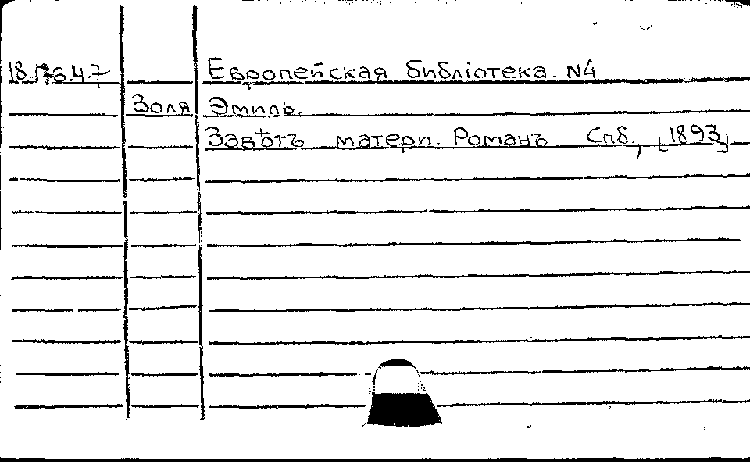 18.176.4.7 Европейская библiотека. N4
Золя Эмиль.
Завѣтъ матери. Романъ Спб., [1893]